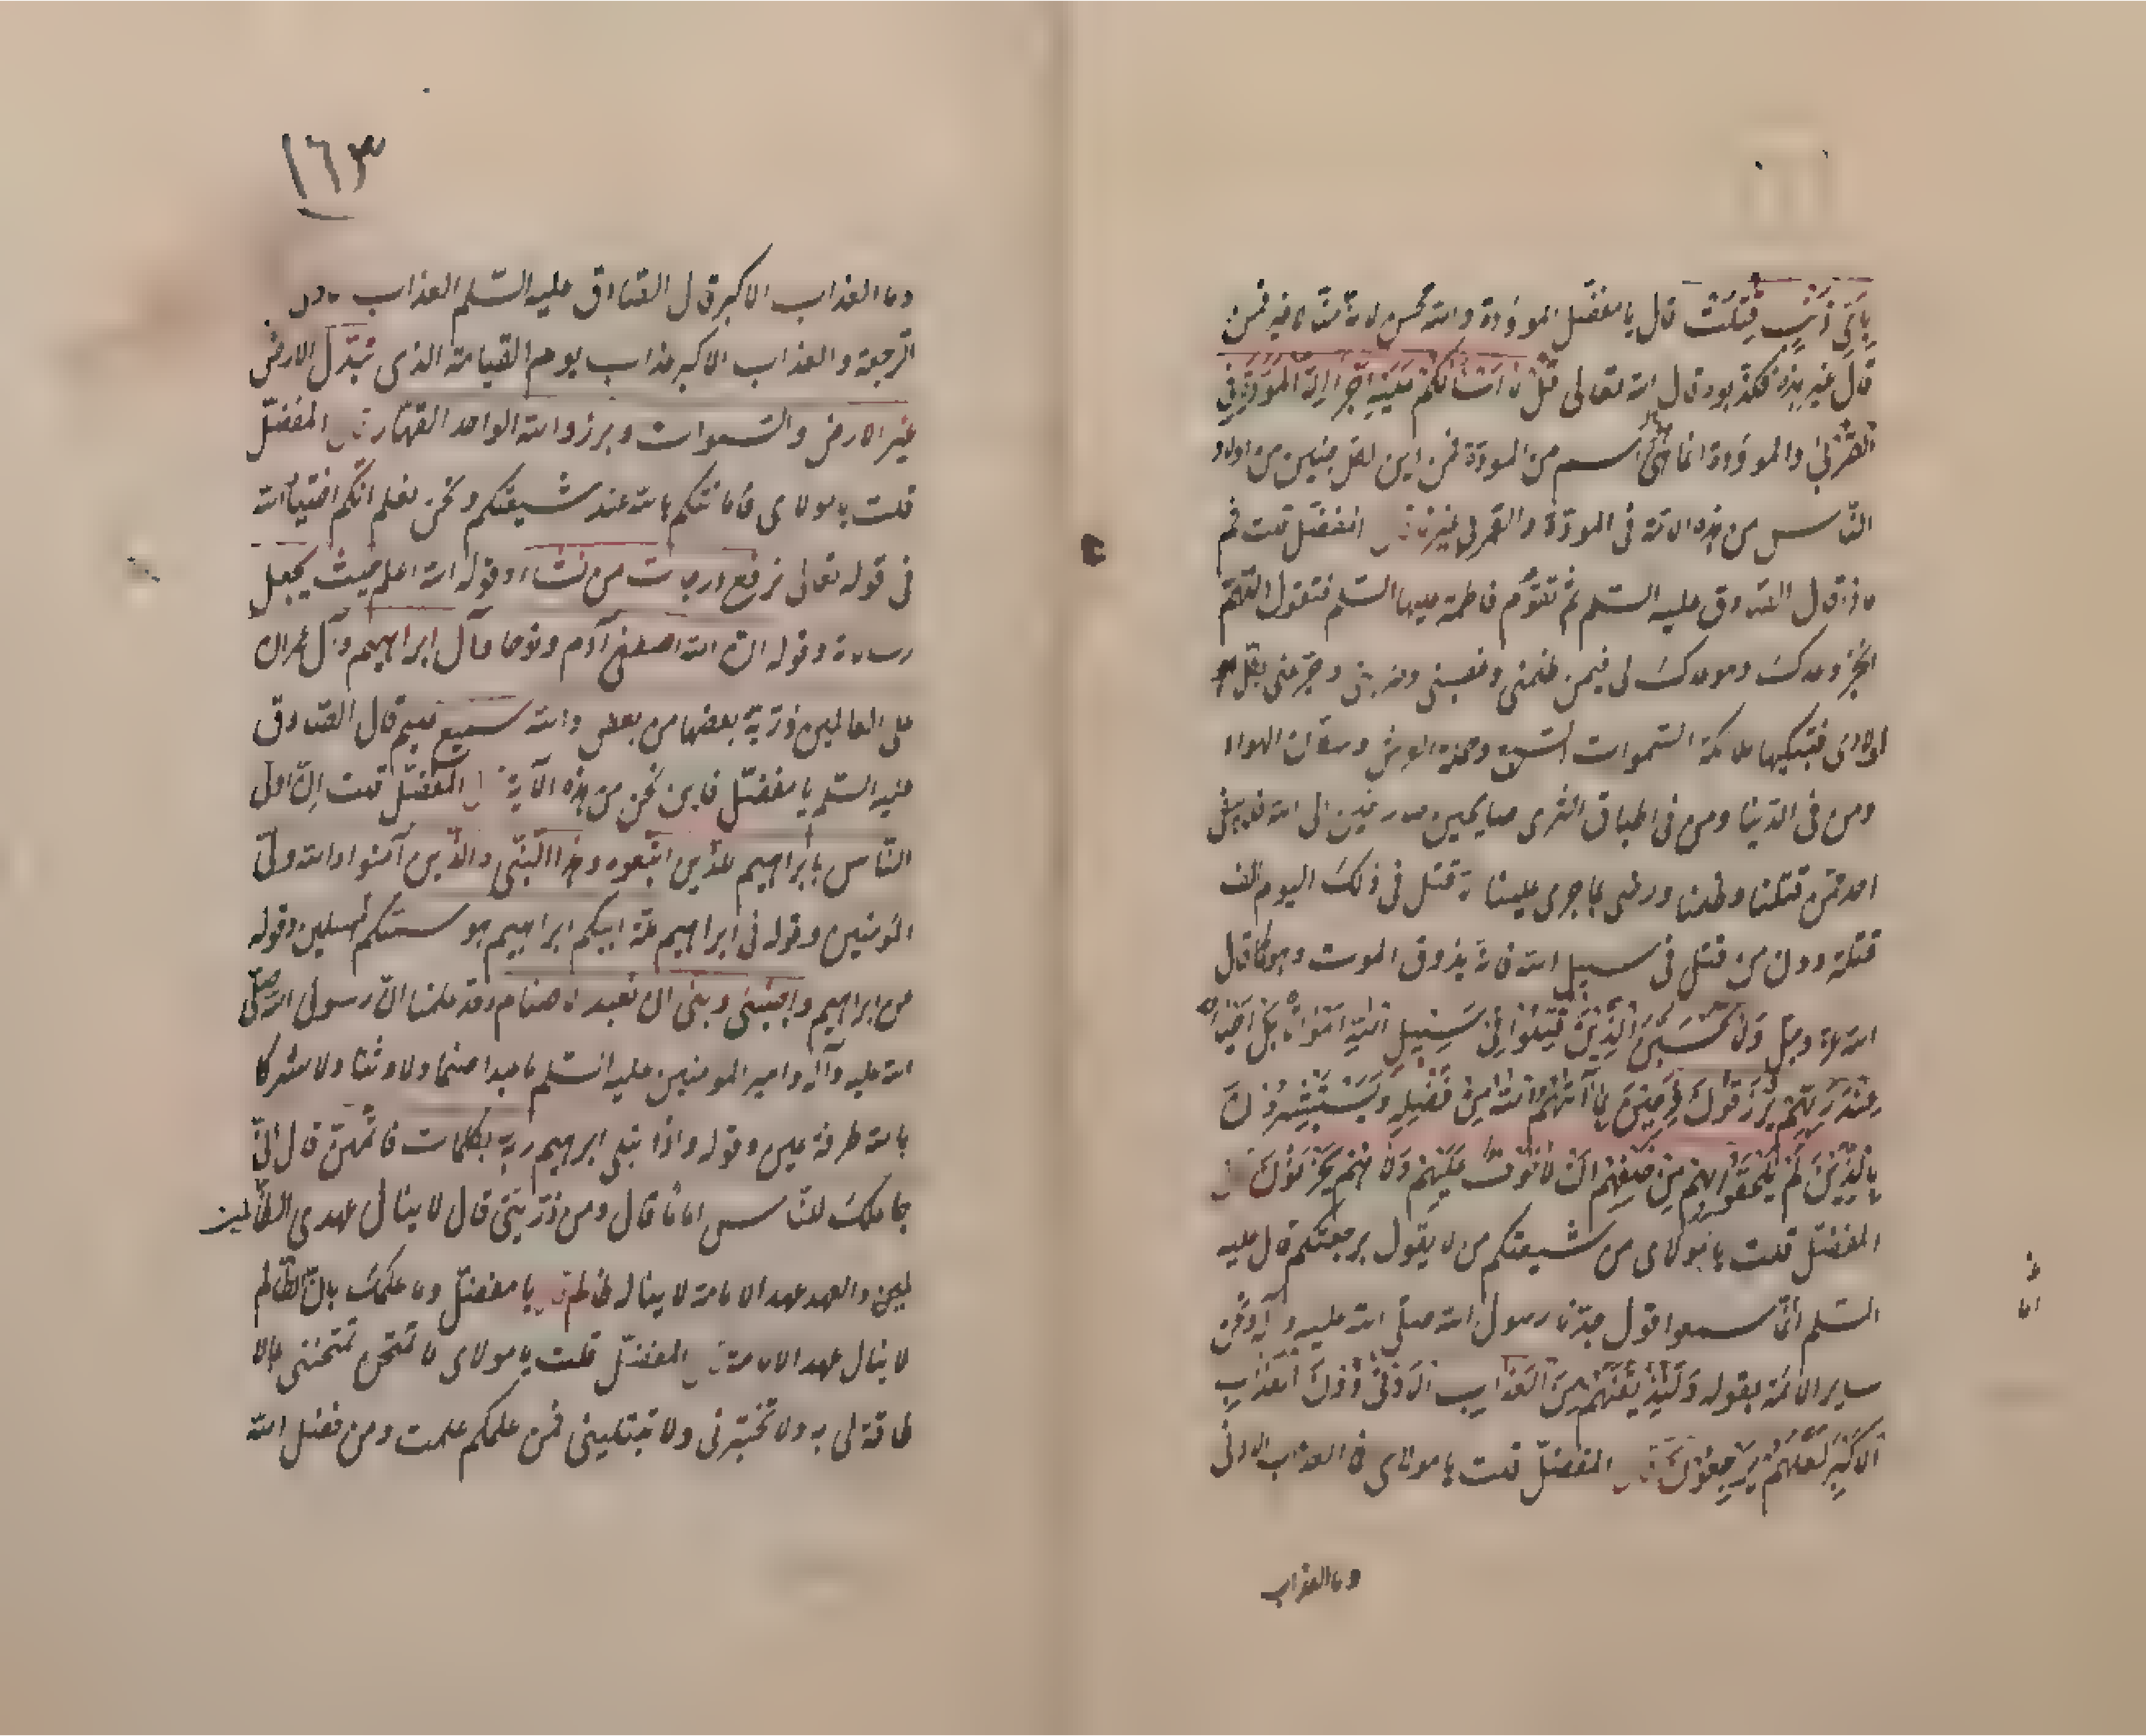 بِاَيِّ ذَنْبٍ قُتِلَتْ قال يا مفضّل الموؤدة والله محسن لانه منّا لا غير فمن
قال غير هذه فكذبوه قال الله تعالى قُلْ لا اَسْئَلُكُمْ عَلَيْهِ اَجْرًا اِلاَّ الْمَوَدَّةَ فِي
الْقُرْبٰى والموؤدة انما هى اسم من المودة فمن اين لكل جنين من اولاد
الناس من هذه الامة فى المودة والقربى غيرنا قال المفضل قلت ثم
ماذا قال الصادق عليه السّلم ثم تقوم فاطمة عليها السلم فتقول اللّهمّ
انجز وعدك وموعدك لى فيمن ظلمنى وغصبنى وضربنى وجزعنى بكل
اولادى فتبكيها ملائكة السّموات السّبع وحملة العرش وسكان الهواء
ومن فى الدّنيا ومن فى اطباق الثرى صايحين صارخين الى الله فلا يبقى
احد ممن قتلنا وظلمنا ورضى بما جرى علينا الا قتل فى ذلك اليوم الف
قتلة دون من قتل فى سبيل الله فانه يذوق الموت وهو كما قال
الله عزّ وجلّ وَلا تَحْسَبَنَّ الَّذِيْنَ قُتِلُوْا فِيْ سَبِيْلِ اللهِ اَمْوَاتًا بَلْ اَحْيَاءٌ
عِنْدَ رَبِّهِمْ يُرْزَقُوْنَ فَرِحِيْنَ بِمَا آتٰهُمُ اللهُ مِنْ فَضْلِهِ وَيَسْتَبْشِرُوْنَ
بِالَّذِيْنَ لَمْ يَلْحَقُوْا بِهِمْ مِنْ خَلْفِهِمْ اَنْ لا خَوْفٌ عَلَيْهِمْ وَلا هُمْ يَحْزَنُوْنَ قال
المفضل قلت يا مولاى من شيعتكم من لا يقول برجعتكم قال عليه
السّلم انّما سمعوا قول جدّنا رسول الله صلّى الله عليه وآله ونحن
ساير الائمة بقوله وَلَنُذِيْقَنَّهُمْ مِنَ الْعَذَابِ الاَدْنٰى دُوْنَ الْعَذَابِ
الاَكْبَرِ لَعَلَّهُمْ يَرْجِعُوْنَ قال المفضّل قلت يا مولاى فما العذاب الادنى
وما العذاب
١٦٣
وما العذاب الاكبر قال الصادق عليه السّلم العذاب
الرّجعة والعذاب الاكبر عذاب يوم القيامة الذى تبدّل الارض
غير الارض والسّموات وبرزوا لله الواحد القهّار قال المفضّل
قلت يا مولاى فامامتكم ثابتة عند شيعتكم ونحن نعلم انّكم اختيار الله
فى قوله تعالى نرفع درجات من نشاء وقوله الله اعلم حيث يجعل
رسالاته وقوله ان الله اصطفى آدم ونوحا وآل ابراهيم وآل عمران
على العالمين ذرّيّة بعضها من بعض والله سميع عليم قال الصادق
عليه السلم يا مفضّل فاين نحن من هذه الآية قال المفضّل قلت انّ اولى
النّاس بابراهيم للذين اتّبعوه وهذا النّبّى والذّين آمنوا والله ولىّ
المؤمنين وقوله فى ابراهيم ملّة ابيكم ابراهيم هو سمّيكم المسلمين وقوله
من ابراهيم واجنبنى وبنى ان نعبد الاصنام وقد علمنا انّ رسول الله صلّى
الله عليه وآله وامير المومنين عليه السّلم ما عبدا صنما ولا وثنا ولا اشركا
بالله طرفة عين وقوله واذ ابتلى ابرهيم ربه بكلمات فاتّمهنّ قال انّى
جاعلك للنّاس اماما قال ومن ذرّيّتى قال لا ينال عهدى الظّالمين
والعهد عهد الامامة لا يناله ظالم قال يا مفضّل وما علمك بانّ الظّالم
لا ينال عهد الامامة قال المفضّل قلت يا مولاى لا تمتحنّى بما لا
طاقة لى به ولا تختبرنى ولا تبتلينى فمن علمكم علمت ومن فضل الله